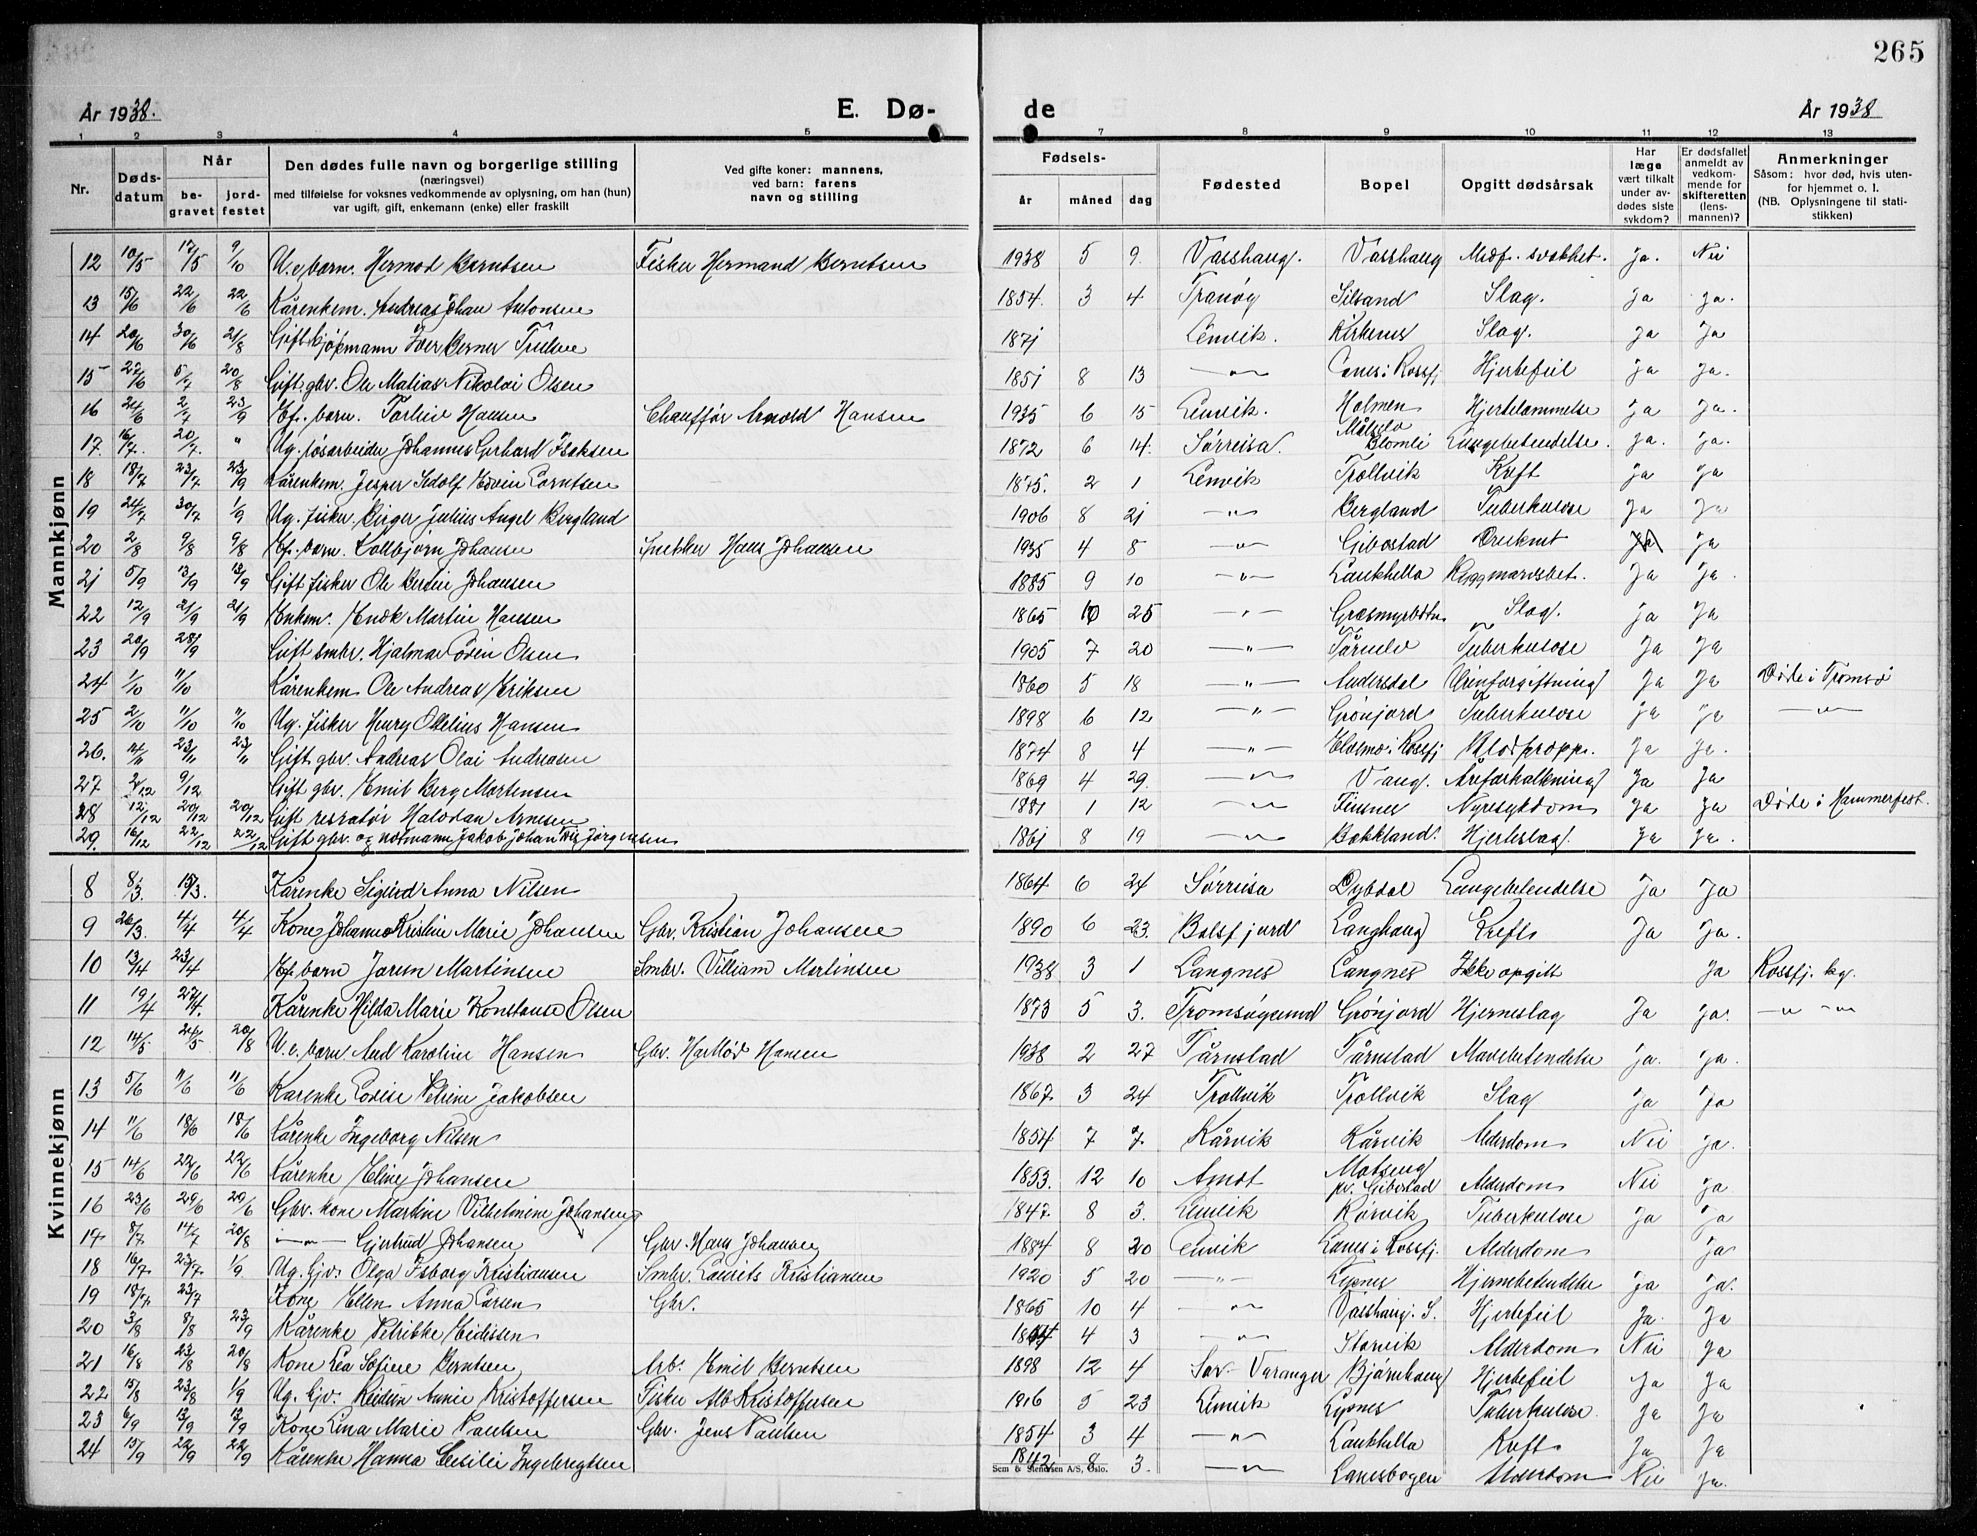 265
År 1938. E. Dø- de År 1938
1 2 3 4 5 7 8 9 10 11 12 13
Nr. Døds-datum Når be-gravet jord-festet Den dødes fulle navn og borgerlige stilling (næringsvei) med tilføielse for voksnes vedkommende av oplysning, om han (hun) var ugift, gift, enkemann (enke) eller fraskilt Ved gifte koner: mannens, ved barn: farens navn og stilling Fødsels- år måned dag Fødested Bopel Opgitt dødsårsak Har læge vært tilkalt under av-dødes siste sykdom? Er dødsfallet anmeldt av vedkom-mende for skifteretten (lens-mannen)? Anmerkninger Såsom: hvor død, hvis uten-for hjemmet o. l. (NB. Oplysningene til stati-stikken)
Mannkjønn
12 10/5 17/5 9/10 U.e. barn. Hermod Berntsen Fisker Hermand Berntsen 1938 5 9 Vasshaug. Vasshaug Medf. svakhet. Ja. Nei
13 15/6 22/6 22/6 Kårenkem. Andreas Johan Antonsen 1854. 3 4 Tranøy Silsand Slag. Ja Ja.
14 20/6 30/6 21/8 Gift kjøpmann Iver Berner 1871 Lenvik. Kirkenes Slag. Ja Ja
15 27/6 5/7 20/8 Gift gbr. Ole Matias Nikolai Olsen 1851 8 13 —"— i Rossfj Hjertefeil Ja Ja.
16 24/6 2/7 23/9 barn. Hansen Chauffør Arnold Hansen 1935 6 15 Lenvik. Holmen Hjertelammelse Ja Ja.
17. 16/7. 20/7. " Ug. løsarbeider Johannes Gerhard Isaksen 1872 6 14. Sørreisa. Målselv Blomli Lungebetendelse. Ja. Ja.
18 18/7 23/7 23/9 Kårenkem. Jesper Adolf Edvin 1875. 2 1 Lenvik Trollvik Kreft Ja Ja
19 24/7 30/7 1/9 Ug. fisker Birger Julius Angel Bergland 1906 8 21 —"— Bergland Tuberkulose Ja Ja
20 2/8 9/8 9/8 barn. Kolbjørn Johansen Snekker Hans Johansen 1935 4 8 —"— Gibostad Ja Ja
21 5/9 13/9 13/9 Gift fisker Ole Berdin Johansen 1885 9 10 —"— Laukhella Ryggmarvsbet. Ja Ja.
22 12/9 21/9 21/9 Enkem. Martin Hansen 1865 10 25 —"— Slag. Ja Ja
23 20/9 28/9 Gift smbr. Hjalmar Olsen 1905 7 20 —"— Tårnelv Tuberkulose Ja Ja
24 1/10 11/10 Kårenkem Ole Andreas Eriksen 1860 5 18 —"— Andersdal Urinforgiftning Ja Ja Døde i Tromsø
25 2/10 11/10 11/10 Ug. fisker Henry Otelius Hansen 1898 6 12 —"— Grønjord Tuberkulose Ja Ja —"—
26. 14/11 23/11 23/11 Gift gbr. Andreas Olai Andreasen 1874 8 4 —"— i Rossfj Blodpropp. Ja Ja.
27 2/12 9/12 Gift gbr. Emil Berg Mortensen 1869 4 29. —"— Vang. Åreforkalkning Ja Ja
28 12/12 20/12 20/12 Gift Halvdan Arnesen 1881 1 12 —"— Finsnes Nyresykdom Ja Ja Døde i Hammerfest.
29. 16/12 22/12 22/12 Gift gbr. og notmann Jakob Johan Jørgensen 1861 8 19 —"— Bakkland. Hjerteslag. Ja Ja.
Kvinnekjønn
8 8/3 15/3. Kårenke Sigrid Anna Nilsen 1864 6 24 Sørreisa Dybdal Lungebetendelse Ja Ja
9 26/3. 4/4 4/4 Kone Johanna Kristine Marie Johansen Gbr. Kristian Johansen 1890 6 23. Balsfjord Langhaug Kreft Ja Ja.
10 13/4 23/4 barn Martinsen Smbr. Villiam Martinsen 1938 3 1 Langnes Langnes Ikke opgitt Ja Rossfj. kg.
11 19/4 27/4. Kårenke Hilda Marie Konstanse Olsen 1873 5 3. Tromsøysund Grønjord Hjerneslag Ja Ja. —"—
12 14/5 24/5 20/8 U.e. barn Aud Karoline Hansen Gbr. Hartløf Hansen 1938 2 27 Tårnstad Tårnstad Mavebetendelse Ja. Ja.
13 5/6 11/6 11/6 Kårenke Lovise Petrine Jakobsen 1867. 3 24 Trollvik Trollvik Slag Ja Ja
14 11/6 18/6 18/6 Kårenke Ingeborg Nilsen 1854 7 7. Kårvik Kårvik Alderdom Nei Ja.
15 14/6 22/6 22/6 Kårenke Eline Johansen 1853. 12 10 Arnøt pr. Gibostad Alderdom Nei Ja
16 23/6 29/6 29/6 Gbr. kone Martine Vilhelmine Johansen 1847. 8 3. Lenvik Kårvik Tuberkulose Ja Ja
17 8/7 14/7 20/8 —"— Gjertrud Johansen Gbr. Hans Johansen 1884 8 20 Lenvik Lanes i Rossfj. Alderdom Ja
18 16/7. 23/7. 1/9 Ug. Gjv. Olga Isborg Kristiansen Smbr. Laurits Kristiansen 1920 5 20 —"— Lysnes Hjernebetendelse Ja Ja.
19 18/7. 23/7 Kone Ellen Anna Larsen Gbr. 1865 10 4 —"— Vasshaug. S. Hjertefeil Ja. Ja
20 3/8 8/8 23/9 Kårenke Petrikke Eidissen 4 3 —"— Storvik Alderdom Nei Ja
21 16/8 23/8 20/8 Kone Lea Sofine Berntsen Arb. Emil Berntsen 1898 12 4 Sør-Varanger Bjørnhaug Hjertefeil Ja Ja
22 15/8 23/8 1/9 Ug. Gjv. Reidun Annie Kristoffersen Fisker Alb Kristoffersen 1916 5 23 Lenvik Lysnes Tuberkulose. Ja Ja
23 6/9 13/9 13/9 Kone Lina Marie Paulsen Gbr. Jens Paulsen 1854 3 4 —"— Laukhella Kreft Ja Ja
24 15/9 22/9 22/9 Kårenke Hanna Cesilie Ingebregtsen 1842 8 3. —"— Lanesbogen Alderdom Nei Ja.
Sem & Stenersen A/S, Oslo.